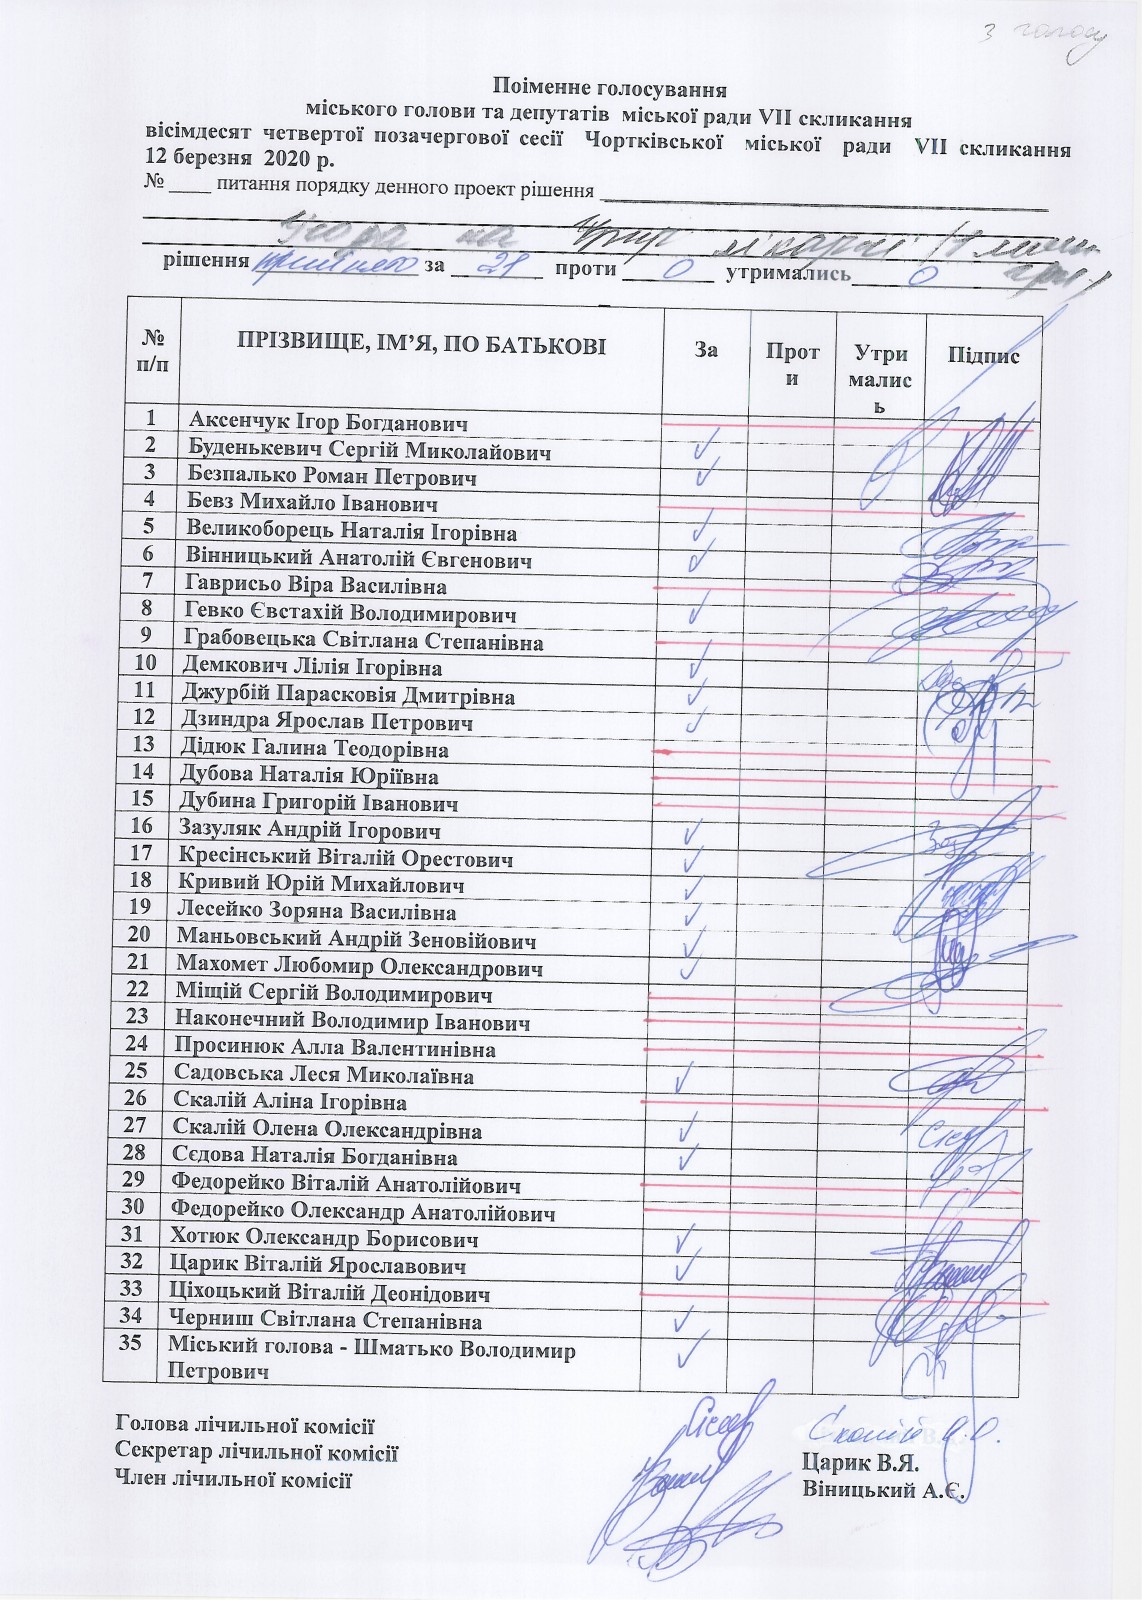 з голосу
Поіменне голосування
міського голови та депутатів міської ради VII скликання
вісімдесят четвертої позачергової сесії Чортківської міської ради VII скликання
12 березня 2020 р.
№ ____ питання порядку денного проект рішення
на лікарні
рішення прийнято за 21 проти 0 утримались 0
№ п/п ПРІЗВИЩЕ, ІМ’Я, ПО БАТЬКОВІ За Проти Утрималис ь Підпис
1 Аксенчук Ігор Богданович
2 Буденькевич Сергій Миколайович ✓
3 Безпалько Роман Петрович ✓
4 Бевз Михайло Іванович
5 Великоборець Наталія Ігорівна ✓
6 Вінницький Анатолій Євгенович ✓
7 Гаврисьо Віра Василівна
8 Гевко Євстахій Володимирович ✓
9 Грабовецька Світлана Степанівна
10 Демкович Лілія Ігорівна ✓
11 Джурбій Парасковія Дмитрівна ✓
12 Дзиндра Ярослав Петрович ✓
13 Дідюк Галина Теодорівна
14 Дубова Наталія Юріївна
15 Дубина Григорій Іванович
16 Зазуляк Андрій Ігорович ✓
17 Кресінський Віталій Орестович ✓
18 Кривий Юрій Михайлович ✓
19 Лесейко Зоряна Василівна ✓
20 Маньовський Андрій Зеновійович ✓
21 Махомет Любомир Олександрович ✓
22 Міщій Сергій Володимирович
23 Наконечний Володимир Іванович
24 Просинюк Алла Валентинівна
25 Садовська Леся Миколаївна ✓
26 Скалій Аліна Ігорівна
27 Скалій Олена Олександрівна ✓
28 Сєдова Наталія Богданівна ✓
29 Федорейко Віталій Анатолійович
30 Федорейко Олександр Анатолійович
31 Хотюк Олександр Борисович ✓
32 Царик Віталій Ярославович ✓
33 Ціхоцький Віталій Деонідович
34 Черниш Світлана Степанівна ✓
35 Міський голова - Шматько Володимир ✓
Петрович
Голова лічильної комісії Скалій О.О.
Секретар лічильної комісії Царик В.Я.
Член лічильної комісії Віницький А.Є.